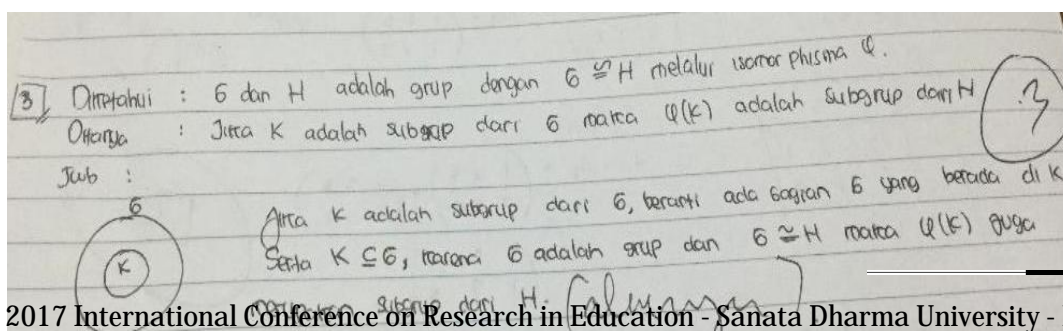 3 Diketahui : G dan H adalah grup dengan G ≅ H melalui isomorphisma φ.
Ditanya : Jika K adalah subgrup dari G maka φ(K) adalah subgrup dari H
3
Jwb :
G
K
Jika K adalah subgrup dari G, berarti ada bagian G yang berada di K
Serta K ⊆ G, karena G adalah grup dan G ≅ H maka φ(K) juga
merupakan subgrup dari H.
2017 International Conference on Research in Education - Sanata Dharma University -